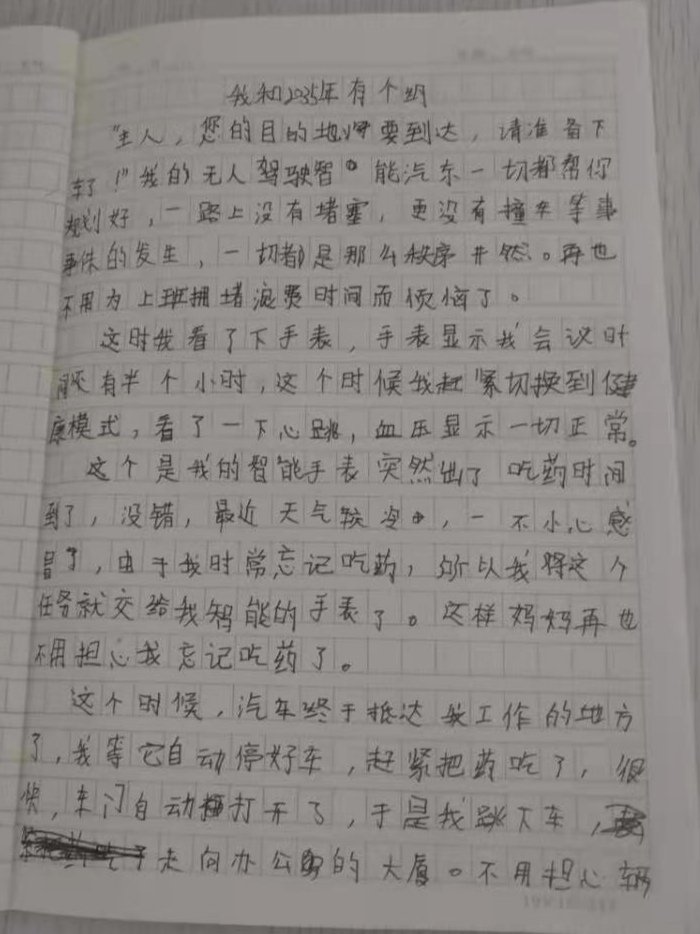 我和2035年有个约
"主人，您的目的地即要到达，请准备下
车了！"我的无人驾驶智能汽车一切都帮你
规划好，一路上没有堵塞，更没有撞车等事
事件的发生，一切都是那么秩序井然。再也
不用为上班拥堵浪费时间而烦恼了。
这时我看了下手表，手表显示我会议时
间还有半个小时，这个时候我赶紧切换到健
康模式，看了一下心跳，血压显示一切正常。
这个是我的智能手表突然出了吃药时间
到了，没错，最近天气较冷，一不小心感
冒了，由于我时常忘记吃药，所以我将这个
任务就交给我智能的手表了。这样妈妈再也
不用担心我忘记吃药了。
这个时候，汽车终于抵达我工作的地方
了，我等它自动停好车，赶紧把药吃了，很
快，车门自动打开了，于是我跳下车，
走向办公的大厦。不用担心辆